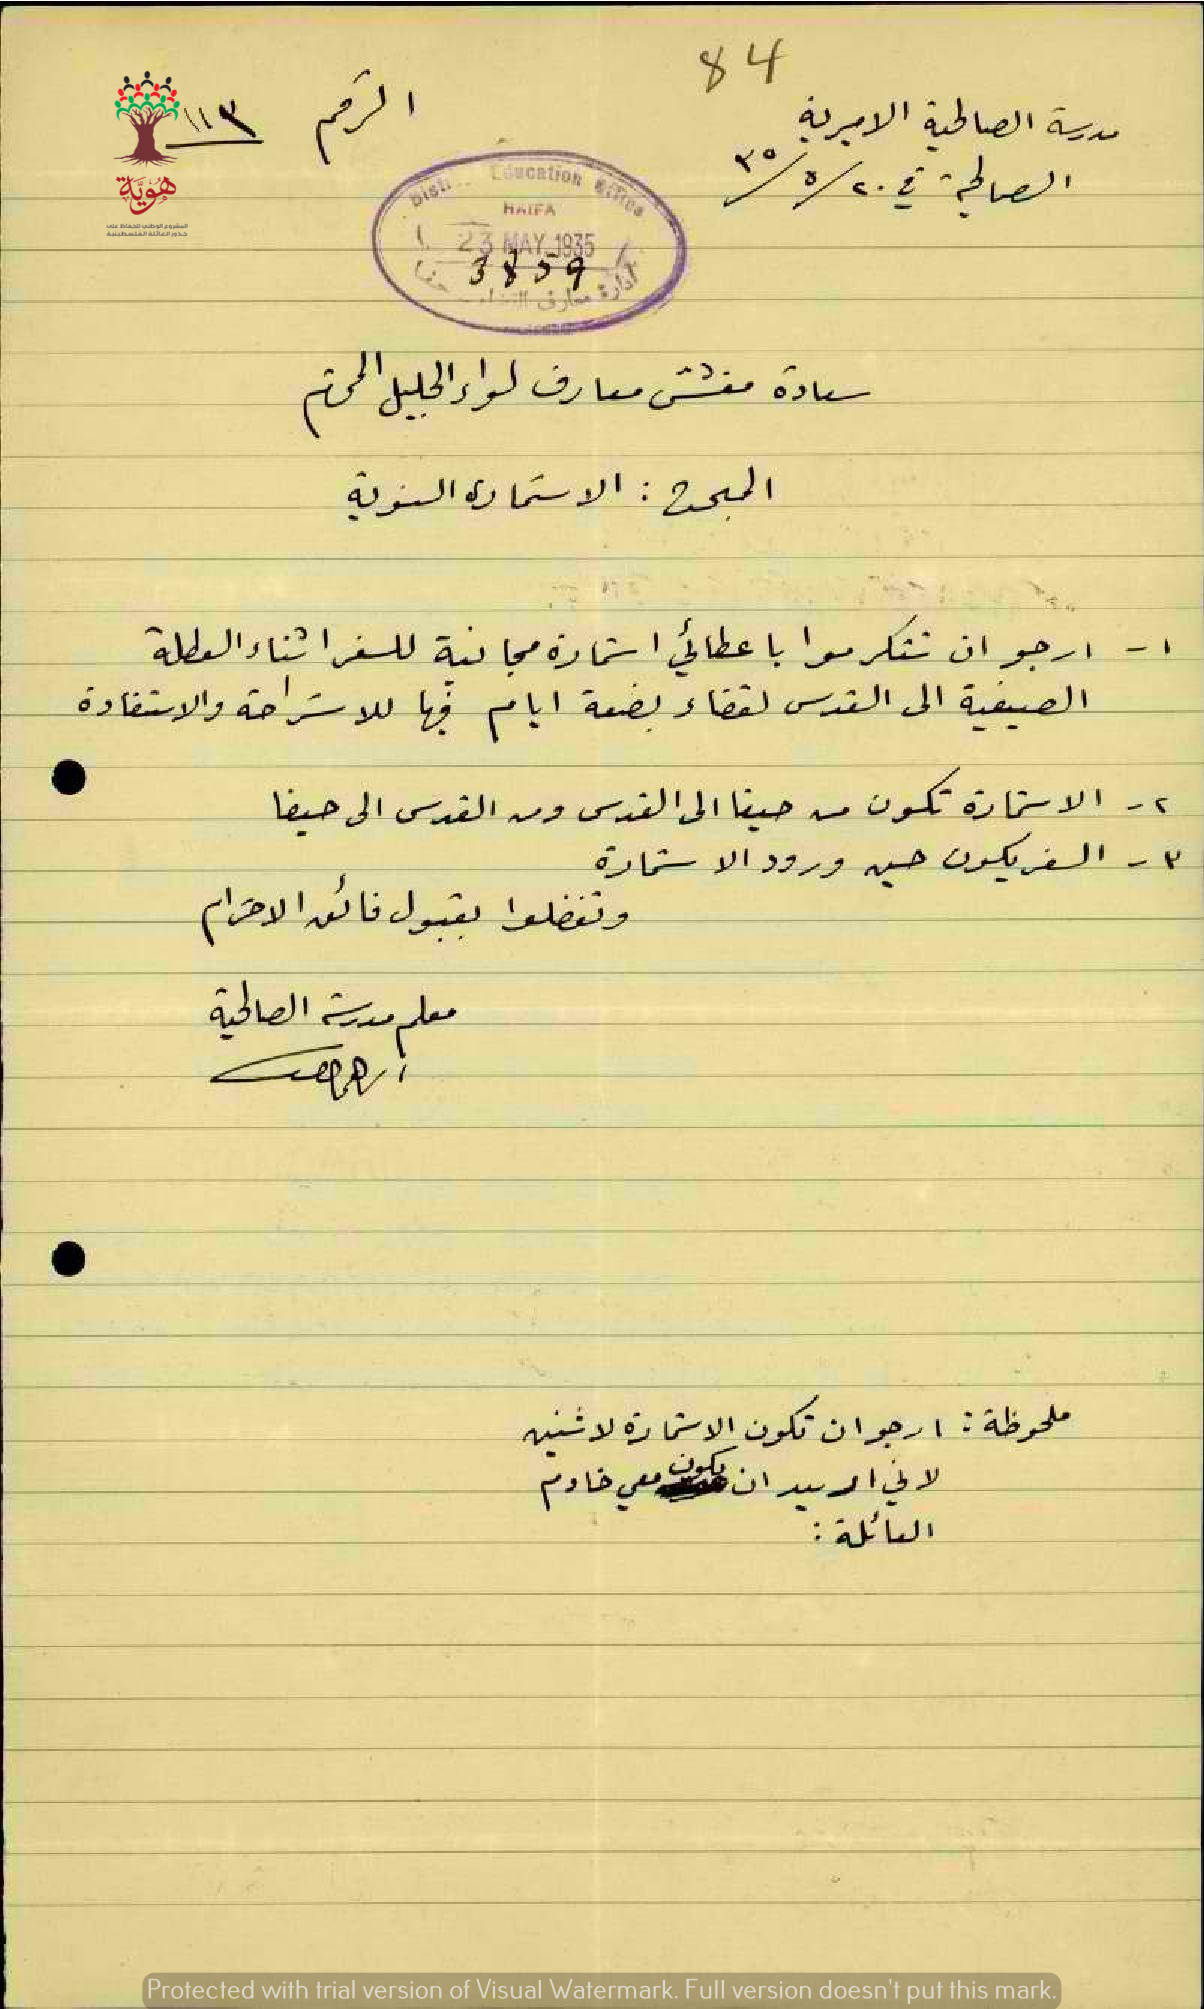 84
مدرسة الصالحية الاميرية
الرقم ١١٣
الصالحية في ٢٠/٥/٣٥
District Education Office
HAIFA
23 MAY 1935
3859
ادارة معارف القضاء حيفا
هُوِيَّة
المشروع الوطني للحفاظ على
جذور العائلة الفلسطينية
سعادة مفتش معارف لواء الجليل المحترم
المبحث : الاستمارة السنوية
١- ارجو ان تتكرموا باعطائي استمارة مجانية للسفر اثناء العطلة
الصيفية الى القدس لقضاء بضعة ايام فيها للاستراحة والاستفادة
٢- الاستمارة تكون من حيفا الى القدس ومن القدس الى حيفا
٣- السفر يكون حين ورود الاستمارة
وتفضلوا بقبول فائق الاحترام
معلم مدرسة الصالحية
ملحوظة : ارجو ان تكون الاستمارة لاثنين
لاني اريد ان يكون معي خادم
العائلة :
Protected with trial version of Visual Watermark. Full version doesn't put this mark.